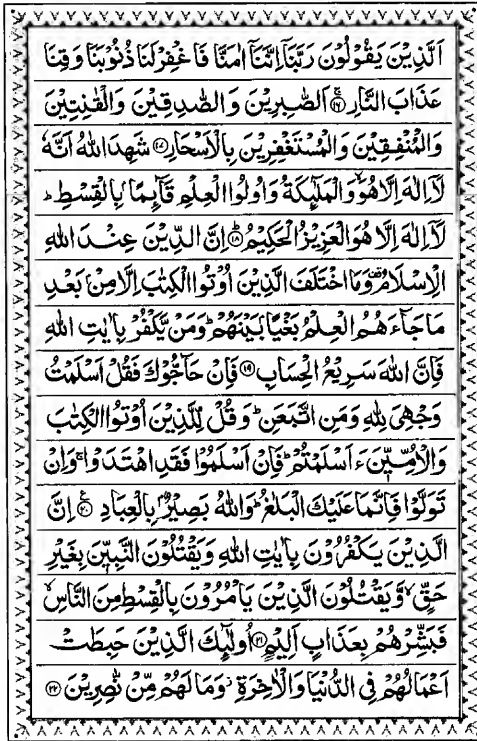 اَلَّذِيْنَ يَقُوْلُوْنَ رَبَّنَاۤ اِنَّنَاۤ اٰمَنَّا فَاغْفِرْلَنَا ذُنُوْبَنَا وَقِنَا
عَذَابَ النَّارِ ۚ﴿۱۶﴾ اَلصّٰبِرِيْنَ وَالصّٰدِقِيْنَ وَالْقٰنِتِيْنَ
وَالْمُنْفِقِيْنَ وَالْمُسْتَغْفِرِيْنَ بِالْاَسْحَارِ ﴿۱۷﴾ شَهِدَ اللهُ اَنَّهٗ
لَاۤ اِلٰهَ اِلَّا هُوَ ۙ وَالْمَلٰٓئِكَةُ وَاُولُوا الْعِلْمِ قَآئِمًۢا بِالْقِسْطِ ؕ
لَاۤ اِلٰهَ اِلَّا هُوَ الْعَزِيْزُ الْحَكِيْمُ ؕ﴿۱۸﴾ اِنَّ الدِّيْنَ عِنْدَ اللهِ
الْاِسْلَامُ ۟ وَمَا اخْتَلَفَ الَّذِيْنَ اُوْتُوا الْكِتٰبَ اِلَّا مِنْۢ بَعْدِ
مَا جَآءَهُمُ الْعِلْمُ بَغْيًۢا بَيْنَهُمْ ؕ وَمَنْ يَّكْفُرْ بِاٰيٰتِ اللهِ
فَاِنَّ اللهَ سَرِيْعُ الْحِسَابِ ﴿۱۹﴾ فَاِنْ حَآجُّوْكَ فَقُلْ اَسْلَمْتُ
وَجْهِىَ لِلّٰهِ وَمَنِ اتَّبَعَنِ ؕ وَقُلْ لِّلَّذِيْنَ اُوْتُوا الْكِتٰبَ
وَالْاُمِّيّٖنَ ءَاَسْلَمْتُمْ ؕ فَاِنْ اَسْلَمُوْا فَقَدِ اهْتَدَوْا ۚ وَاِنْ
تَوَلَّوْا فَاِنَّمَا عَلَيْكَ الْبَلٰغُ ؕ وَاللهُ بَصِيْرٌۢ بِالْعِبَادِ ﴿۲۰﴾ اِنَّ
الَّذِيْنَ يَكْفُرُوْنَ بِاٰيٰتِ اللهِ وَيَقْتُلُوْنَ النَّبِيّٖنَ بِغَيْرِ
حَقٍّ ۙ وَّيَقْتُلُوْنَ الَّذِيْنَ يَاْمُرُوْنَ بِالْقِسْطِ مِنَ النَّاسِ ۙ
فَبَشِّرْهُمْ بِعَذَابٍ اَلِيْمٍ ﴿۲۱﴾ اُولٰٓئِكَ الَّذِيْنَ حَبِطَتْ
اَعْمَالُهُمْ فِى الدُّنْيَا وَالْاٰخِرَةِ ۫ وَمَا لَهُمْ مِّنْ نّٰصِرِيْنَ ﴿۲۲﴾